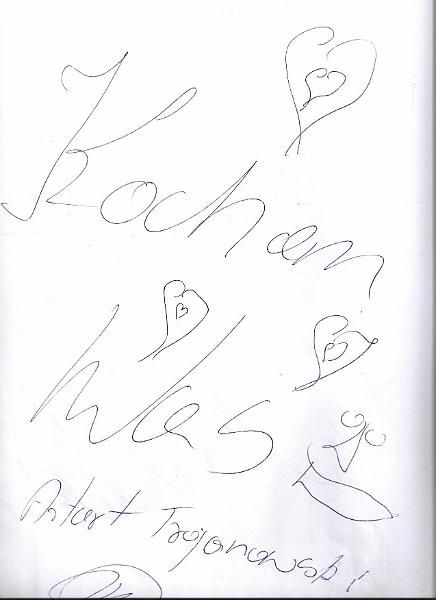 Kocham
Was
Artart Trojanowski